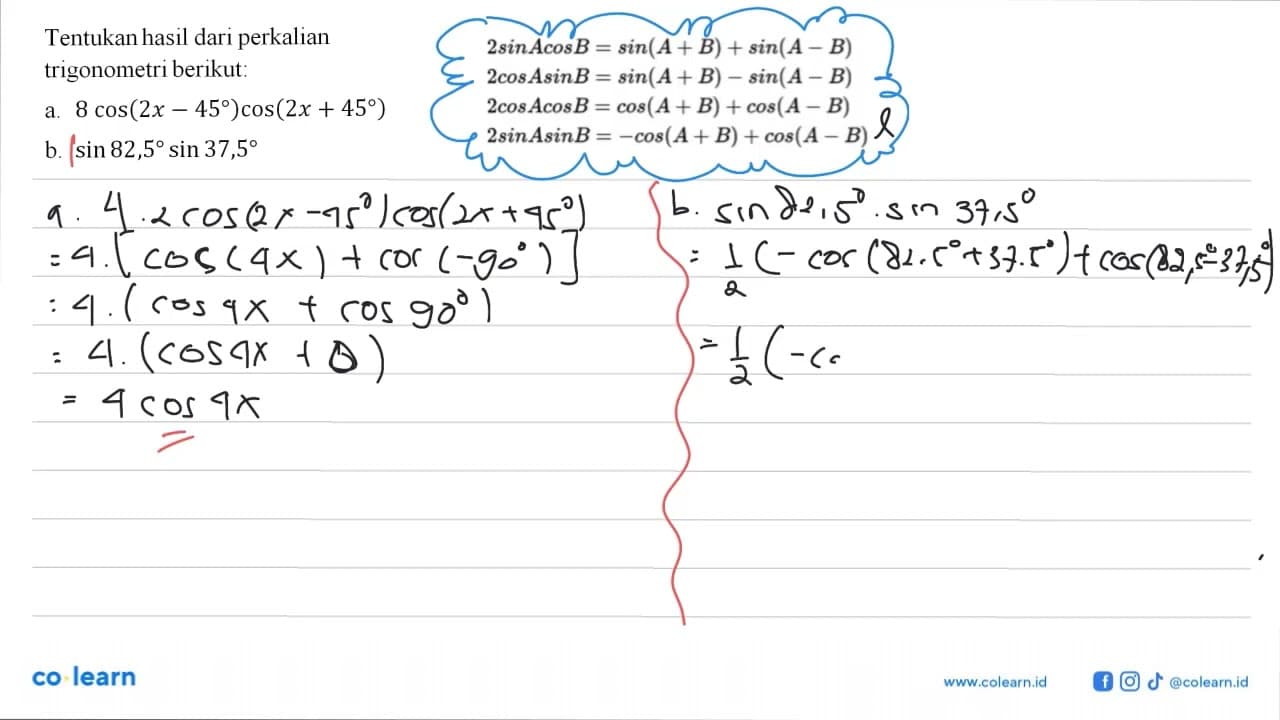 Tentukan hasil dari perkalian
trigonometri berikut:
a. 8 cos(2x − 45°)cos(2x + 45°)
b. sin 82,5° sin 37,5°
2sinAcosB = sin(A + B) + sin(A − B)
2cosAsinB = sin(A + B) − sin(A − B)
2cosAcosB = cos(A + B) + cos(A − B)
2sinAsinB = −cos(A + B) + cos(A − B)
a. 4.2 cos(2x -45°)cos(2x+45°)
= 4.[cos(4x) + cos(-90°)]
= 4.(cos 4x + cos 90°)
= 4.(cos 4x + 0)
= 4 cos 4x
b. sin 82,5°. sin 37,5°
= 1/2 (- cos(82.5°+37.5°)+cos(82,5°-37,5°)
= 1/2 (-co
co learn
www.colearn.id
@colearn.id